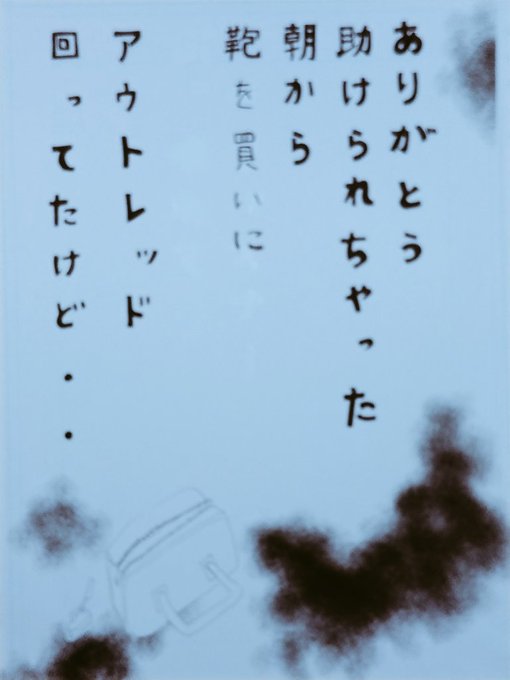 ありがとう
助けられちゃった
朝から
鞄を買いに
アウトレッド
回ってたけど・・